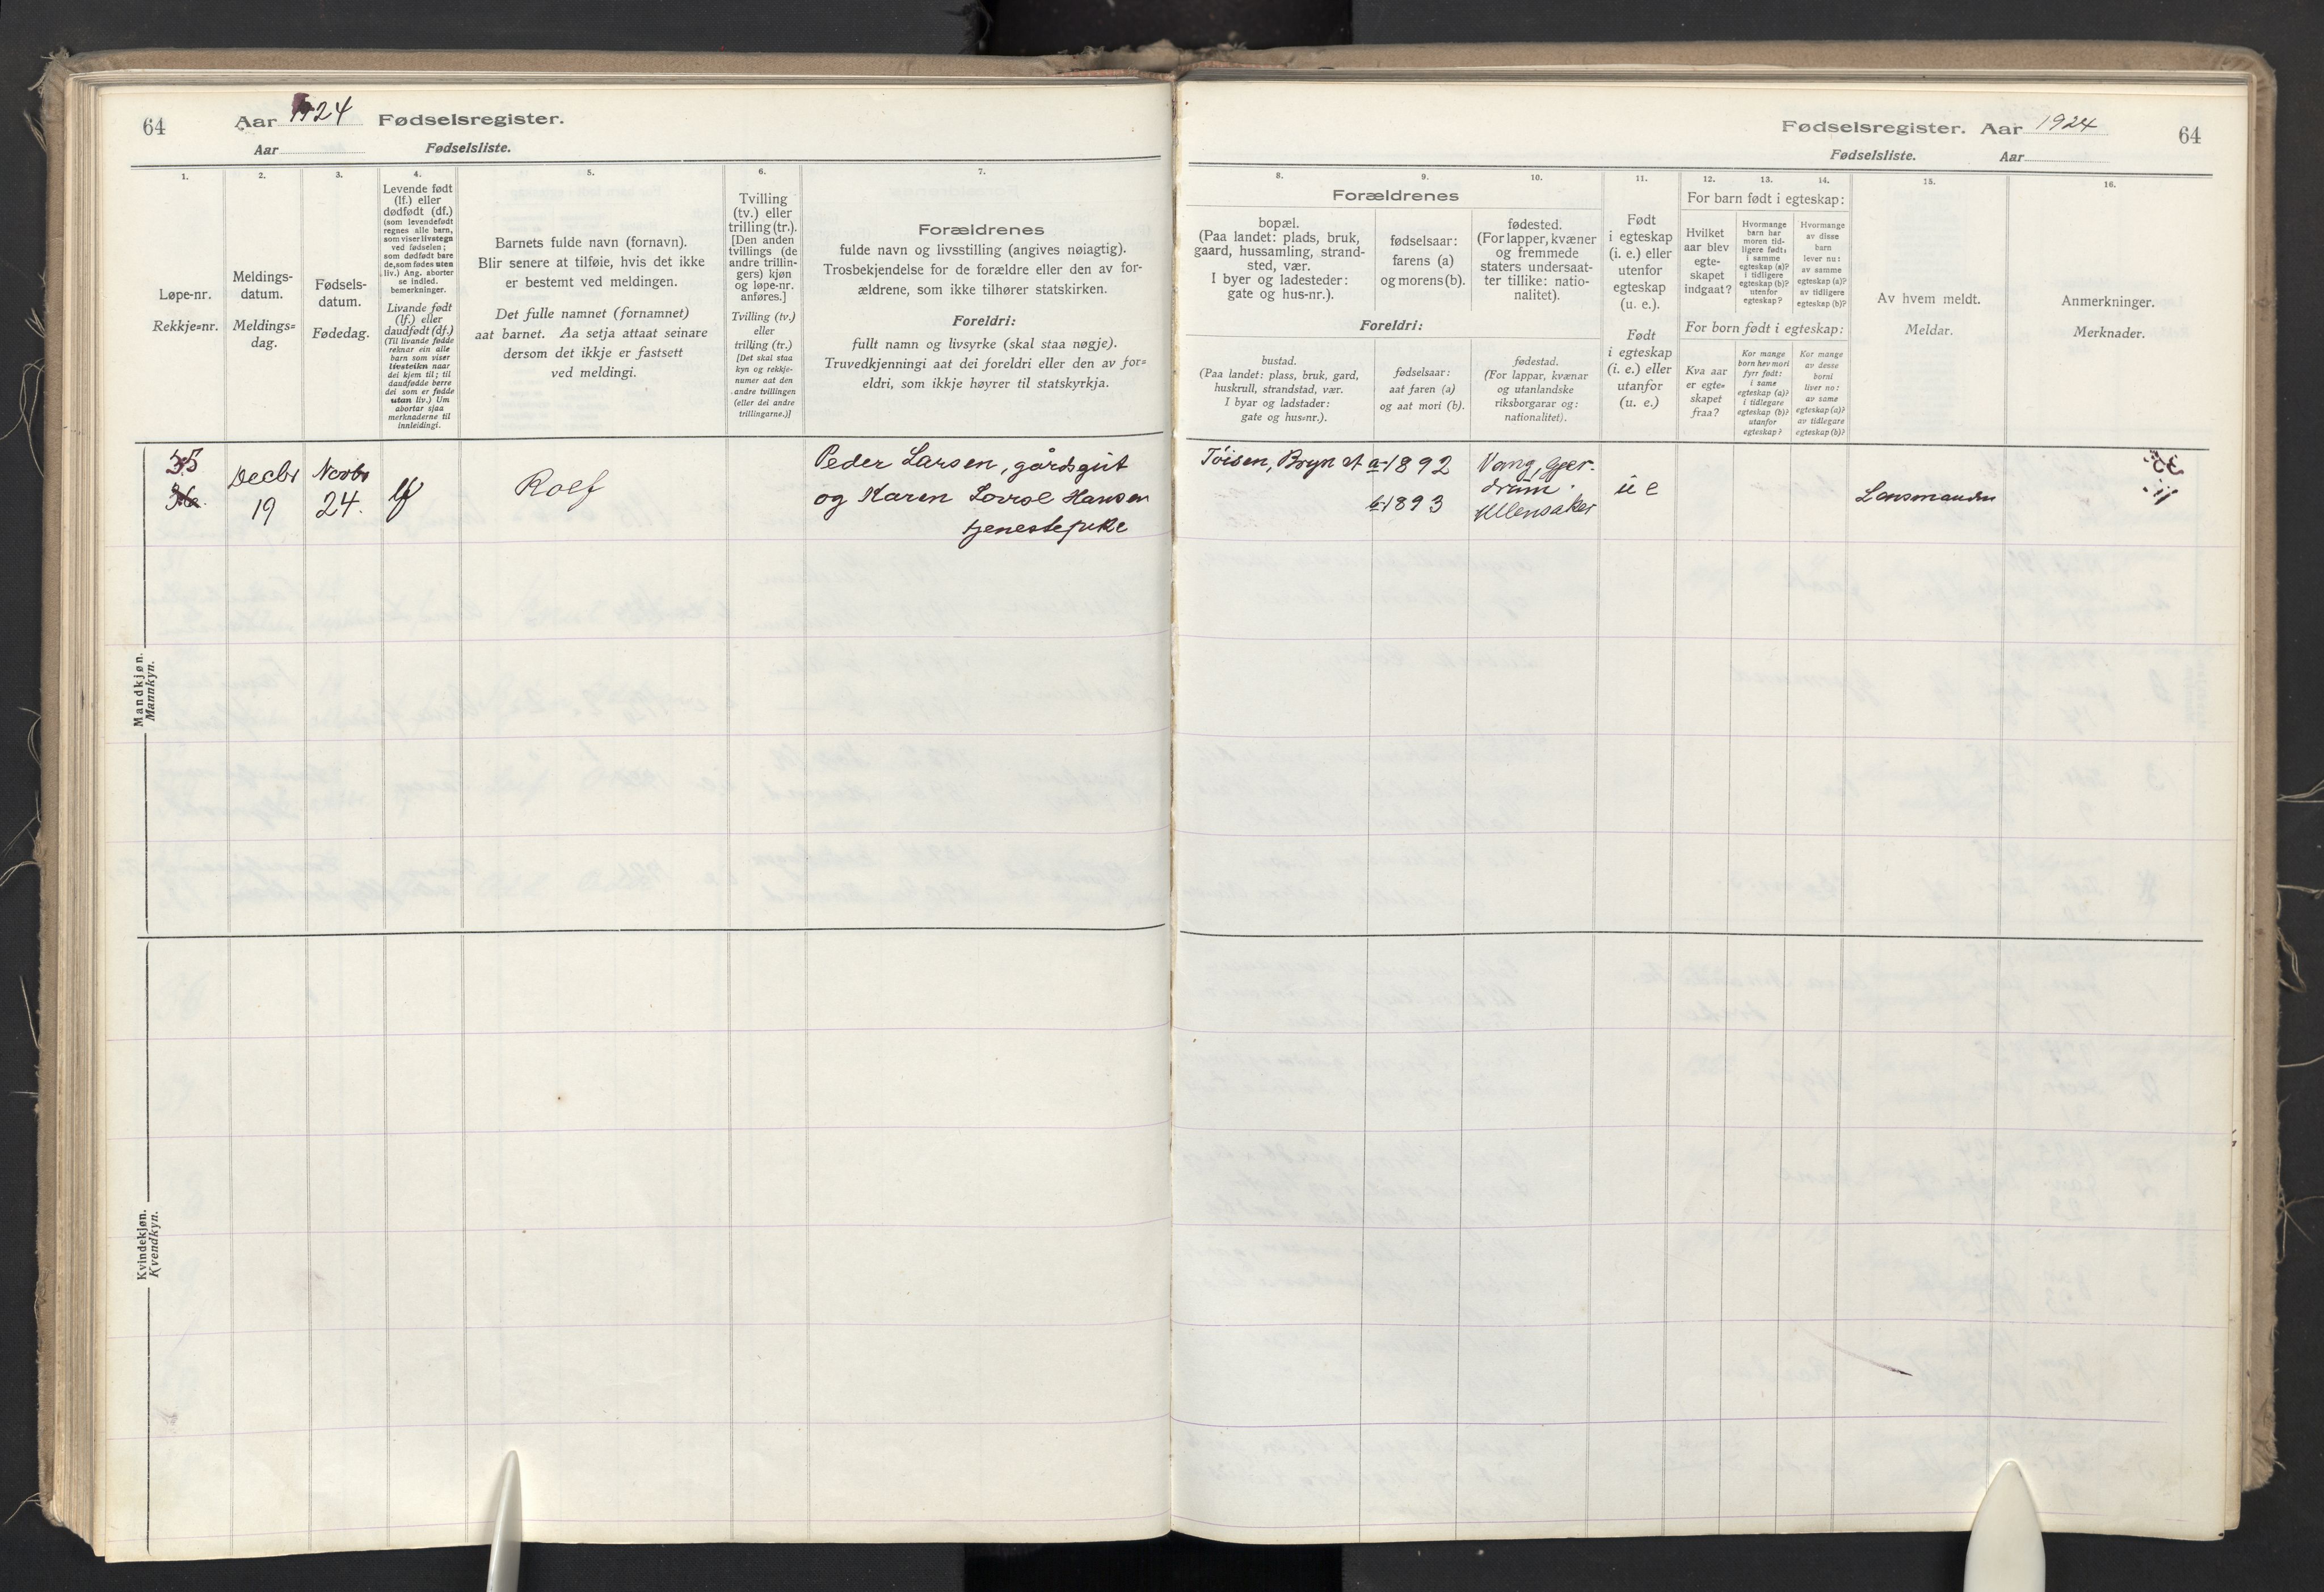 64
Aar 1924 Fødselsregister.
Aar Fødselsliste.
1.
Løpe-nr.
Rekkje=nr.
2.
Meldings-
datum.
Meldings=
dag.
3.
Fødsels-
datum.
Fødedag.
4.
Levende født
(lf.) eller
dødfødt (df.)
(som levendefødt
regnes alle barn,
som viser livstegn
ved fødselen;
som dødfødt bare
de, som fødes uten
liv.) Ang. aborter
se indled.
bemerkninger.
Livande født
(lf.) eller
daudfødt (df.)
(Til livande fødde
reknar ein alle
barn som viser
livsteikn naar
dei kjem til; til
daudfødde berre
dei som er fødde
utan liv.) Um
abortar sjaa
merknaderne til
innleidingi.
5.
Barnets fulde navn (fornavn).
Blir senere at tilføie, hvis det ikke
er bestemt ved meldingen.
Det fulle namnet (fornamnet)
aat barnet. Aa setja attaat seinare
dersom det ikkje er fastsett
ved meldingi.
6.
Tvilling
(tv.) eller
trilling (tr.).
[Den anden
tvillings (de
andre trillin-
gers) kjøn
og løpe-nr.
anføres.]
Tvilling (tv.)
eller
trilling (tr.)
[Det skal staa
kyn og rekkje-
numer aat den
andre tvillingen
(eller dei andre
trillingarne.)]
7.
Forældrenes
fulde navn og livsstilling (angives nøiagtig).
Trosbekjendelse for de forældre eller den av for-
ældrene, som ikke tilhører statskirken.
Foreldri:
fullt namn og livsyrke (skal staa nøgje).
Truvedkjenningi aat dei foreldri eller den av for=
eldri, som ikkje høyrer til statskyrkja.
35
Decbr
19
Novbr
24.
lf
Rolf
Peder Larsen, gårdsgut
og Karen Lovise Hansen
tjenestepike
Mandkjøn.
Mannkyn.
Kvindekjøn.
Kvendkyn.
Fødselsregister. Aar 1924
64
Fødselsliste. Aar
Forældrenes
8.
bopæl.
(Paa landet: plads, bruk,
gaard, hussamling, strand-
sted, vær.
I byer og ladesteder:
gate og hus-nr.).
9.
fødselsaar:
farens (a)
og morens (b).
10.
fødested.
(For lapper, kvæner
og fremmede
staters undersaat-
ter tillike: natio-
nalitet).
Foreldri:
bustad.
(Paa landet: plass, bruk, gard,
huskrull, strandstad, vær.
I byar og ladstader:
gate og hus=nr.).
fødselsaar:
aat faren (a)
og aat mori (b).
fødestad.
(For lappar, kvænar
og utanlandske
riksborgarar og:
nationalitet).
11.
Født
i egteskap
(i. e.) eller
utenfor
egteskap
(u. e.).
Født
i egteskap
(i. e.) eller
utanfor
(u. e.)
12.
13.
14.
For barn født i egteskap:
Hvilket
aar blev
egte-
skapet
indgaat?
Hvormange
barn har
moren tid-
ligere født:
i samme
egteskap (a)?
i tidligere
egteskap (b)?
utenfor
egteskap?
Hvormange
av disse
barn
lever nu:
av samme
egteskap (a)?
av tidligere
egteskap (b)?
For born født i egteskap:
Kva aar
er egte=
skapet
fraa?
Kor mange
born hev mori
fyrr født:
i same
egteskap (a)?
i tidlegare
egteskap (b)?
utanfor
egteskap?
Kor mange
av desse
borni
liver no:
av same
egteskap (a)?
av tidlegare
egteskap (b)?
15.
Av hvem meldt.
Meldar.
16.
Anmerkninger.
Merknader.
Töisen, Bryn st
a-1892
b-1893
Vang, Gjer-
drum.
Ullensaker
u e
Lensmanden